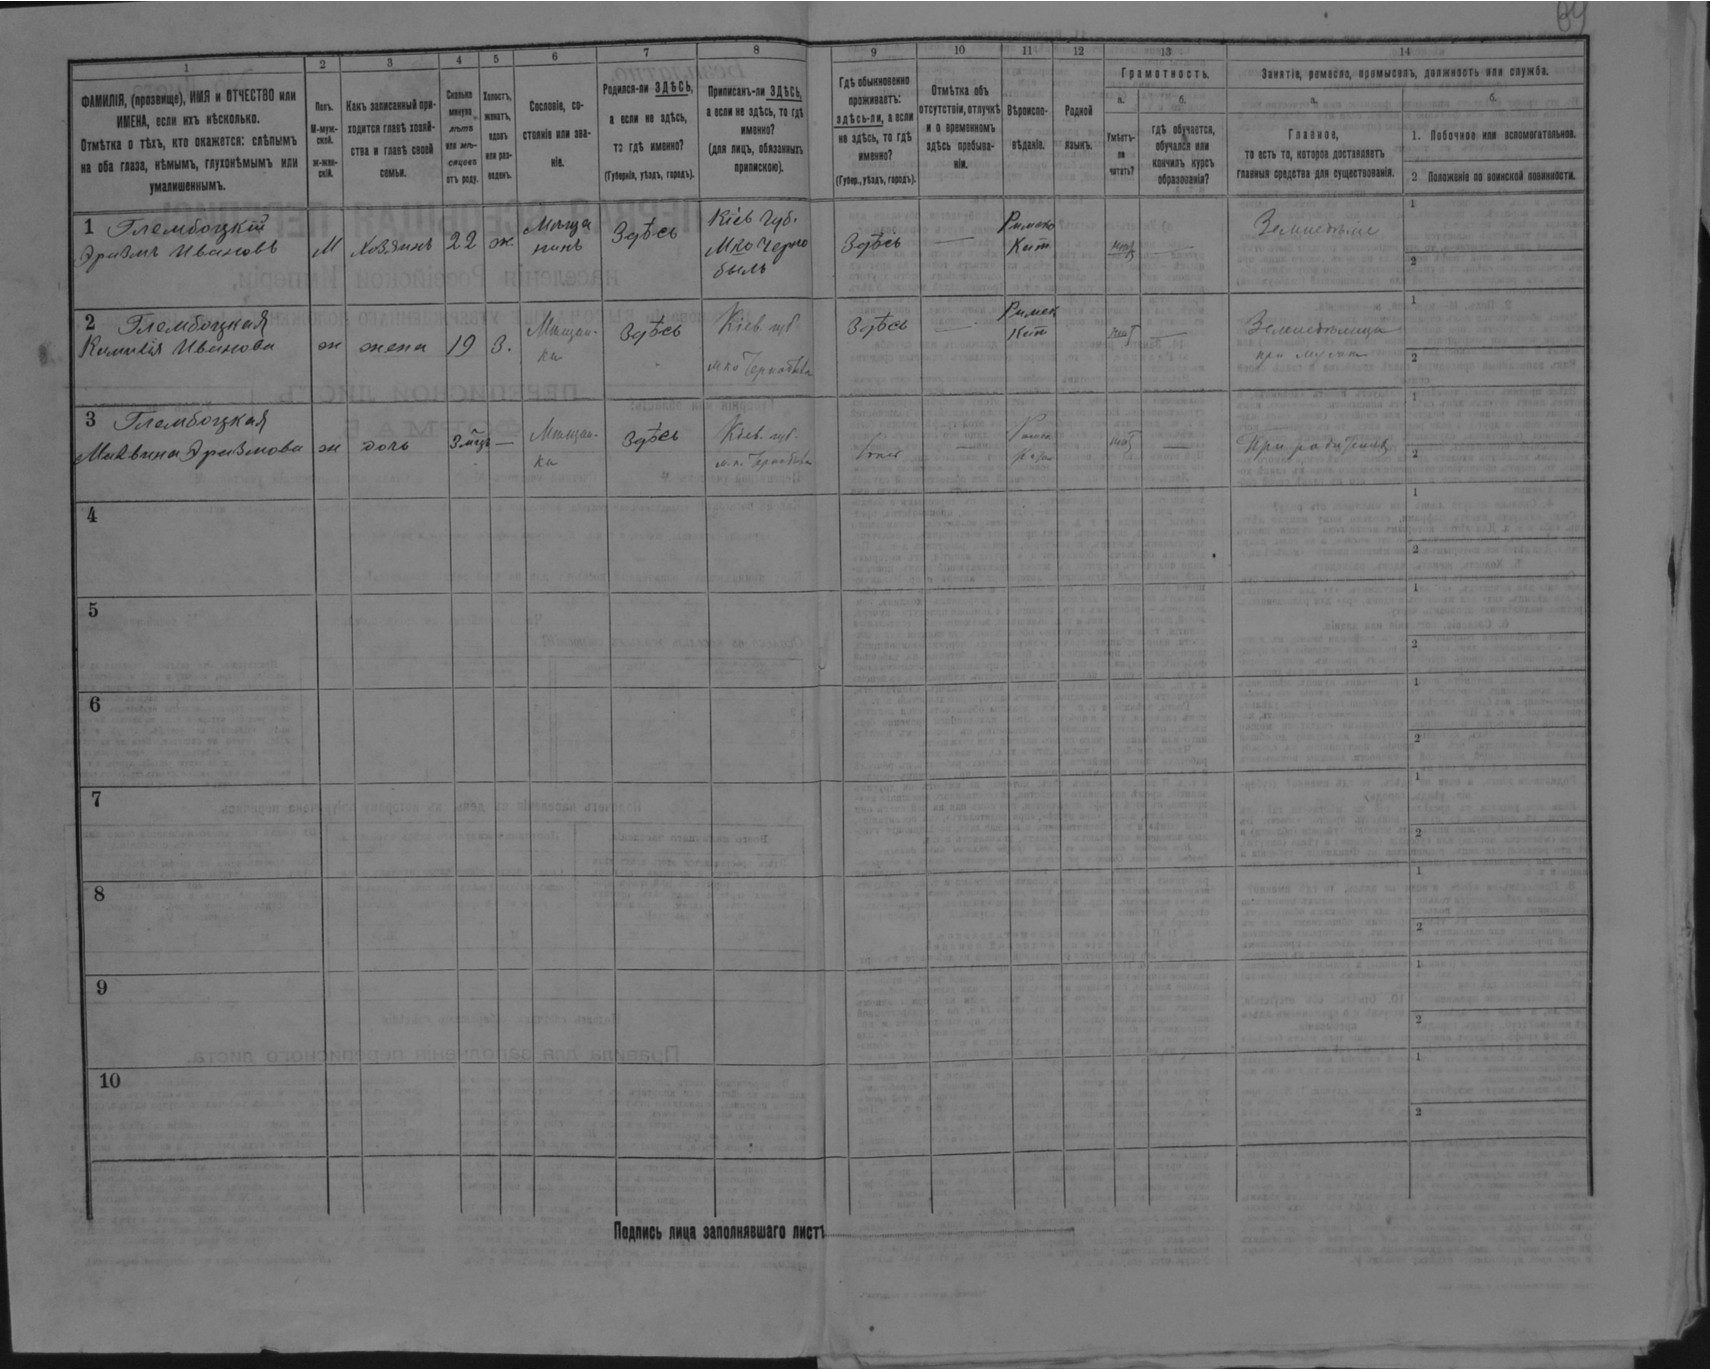 69
1
2
3
4
5
6
7
8
9
10
11
12
13
14
ФАМИЛІЯ, (прозвище), ИМЯ и ОТЧЕСТВО или
ИМЕНА, если ихъ нѣсколько.
Отмѣтка о тѣхъ, кто окажется: слѣпымъ
на оба глаза, нѣмымъ, глухонѣмымъ или
умалишеннымъ.
Полъ.
М-муж-
ской.
Ж-жен-
скій.
Какъ записанный при-
ходится главѣ хозяй-
ства и главѣ своей
семьи.
Сколько
минуло
лѣтъ
или мѣ-
сяцевъ
отъ роду.
Холостъ,
женатъ,
вдовъ
или раз-
веденъ.
Сословіе, со-
стояніе или зва-
ніе.
Родился-ли ЗДѢСЬ,
а если не здѣсь,
то гдѣ именно?
(Губернія, уѣздъ, городъ).
Приписанъ-ли ЗДѢСЬ,
а если не здѣсь, то гдѣ
именно?
(для лицъ, обязанныхъ
припискою).
Гдѣ обыкновенно
проживаетъ:
здѣсь-ли, а если
не здѣсь, то гдѣ
именно?
(Губер., уѣздъ, городъ).
Отмѣтка объ
отсутствіи, отлучкѣ
и о временномъ
здѣсь пребыва-
ніи.
Вѣроиспо-
вѣданіе.
Родной
языкъ.
Грамотность.
а.
Умѣетъ-
ли
читать?
б.
гдѣ обучается,
обучался или
кончилъ курсъ
образованія?
Занятіе, ремесло, промыселъ, должность или служба.
а.
Главное,
то есть то, которое доставляетъ
главныя средства для существованія.
б.
1. Побочное или вспомогательное.
2 Положеніе по воинской повинности.
1 Глембоцкій
Эразмъ Ивановъ
М
Хозяинъ
22
ж.
Мѣща
нинъ
Здѣсь
Кіев губ.
Мко Черно
быль
Здѣсь
—
Римско
Кат
—
Земледѣліе
1
2
2 Глембоцкая
Ивановa
ж
жена
19
З.
Мѣщан-
ка
Здѣсь
Кіев. губ.
мко Чернобыль
Здѣсь
—
Римск
Кат
—
при мужѣ
1
2
3 Глембоцкая
Эразмова
ж
дочь
3 мѣц
—
Мѣщан-
ка
Здѣсь
Кіев. губ.
—
—
При родит
1
2
4
1
2
5
1
2
6
1
2
7
1
2
8
1
2
9
1
2
10
1
2
Подпись лица заполнявшаго листъ